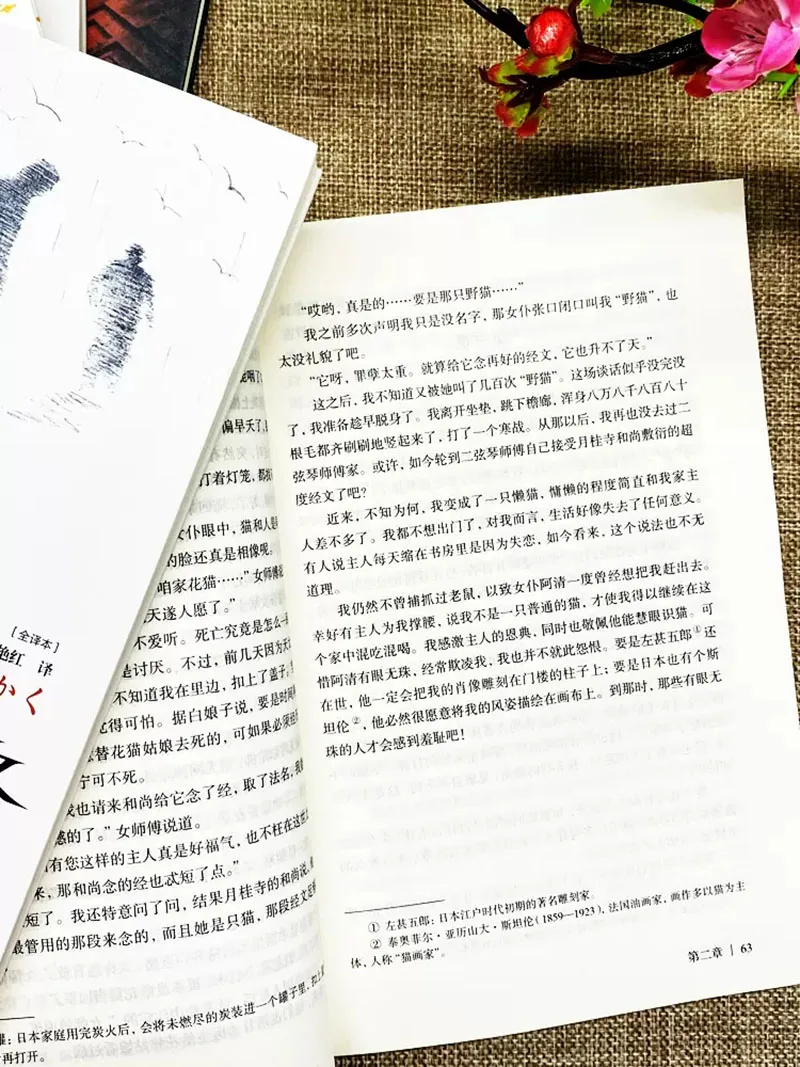 [全译本]
艳红 译
かく
偏早天了,
打着灯笼,都
女仆眼中,猫和人
的脸还真是相像呢。
咱家花猫……”女师傅
天遂人愿了。”
不爱听。死亡究竟是怎么
是讨厌。不过,前几天因为天
不知道我在里边,扣上了盖子。
觉得可怕。据白娘子说,要是时间
替花猫姑娘去死的,可如果必须
宁可不死。
我也请来和尚给它念了经,取了法名,我
感的了。”女师傅说道。
有您这样的主人真是好福气,也不枉在这世
来,那和尚念的经也忒短了点。”
短了。我还特意问了问,结果月桂寺的和尚说,
最管用的那段来念的,而且她是只猫,那段经文足
:日本家庭用完炭火后,会将未燃尽的炭装进一个罐子里,扣上
再打开。
“哎哟,真是的……要是那只野猫……”
我之前多次声明我只是没名字,那女仆张口闭口叫我“野猫”,也
太没礼貌了吧。
“它呀,罪孽太重。就算给它念再好的经文,它也升不了天。”
这之后,我不知道又被她叫了几百次“野猫”。这场谈话似乎没完没
了,我准备趁早脱身了。我离开坐垫,跳下檐廊,浑身八万八千八百八十
根毛都齐刷刷地竖起来了,打了一个寒战。从那以后,我再也没去过二
弦琴师傅家。或许,如今轮到二弦琴师傅自己接受月桂寺和尚敷衍的超
度经文了吧?
近来,不知为何,我变成了一只懒猫,慵懒的程度简直和我家主
人差不多了。我都不想出门了,对我而言,生活好像失去了任何意义。
有人说主人每天缩在书房里是因为失恋,如今看来,这个说法也不无
道理。
我仍然不曾捕抓过老鼠,以致女仆阿清一度曾经想把我赶出去。
幸好有主人为我撑腰,说我不是一只普通的猫,才使我得以继续在这
个家中混吃混喝。我感激主人的恩典,同时也敬佩他能慧眼识猫。可
惜阿清有眼无珠,经常欺凌我,我也并不就此怨恨。要是左甚五郎①还
在世,他一定会把我的肖像雕刻在门楼的柱子上;要是日本也有个斯
坦伦②,他必然很愿意将我的风姿描绘在画布上。到那时,那些有眼无
珠的人才会感到羞耻吧!
① 左甚五郎:日本江户时代初期的著名雕刻家。
② 泰奥菲尔·亚历山大·斯坦伦(1859—1923),法国油画家,画作多以猫为主
体,人称“猫画家”。
第二章 | 63